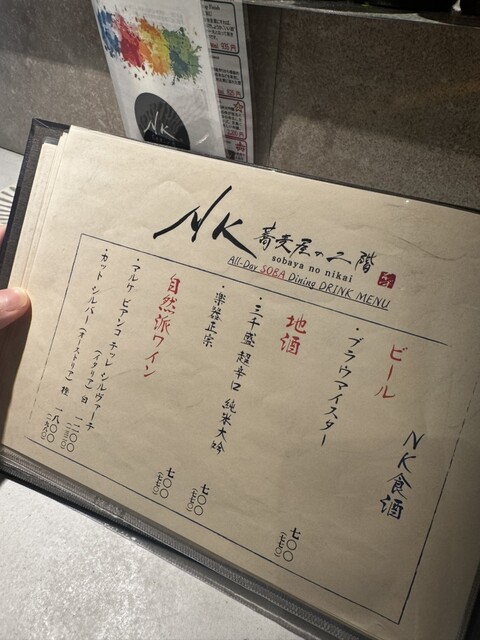 NK 蕎麦屋の二階
sobaya no nikai
All-Day SOBA Dining DRINK MENU
NK食酒
ビール
・ブラウマイスター 七〇〇
(七七〇)
地酒
・三千盛 超辛口 純米大吟 七〇〇
(七七〇)
・楽器正宗 七〇〇
(七七〇)
自然派ワイン
・マルケ ビアンコ チッレ シルヴァーチ
(イタリア) 白 一一〇〇
・カット シルバー (オーストリア) 橙 一八〇〇
(一九八〇)
NK